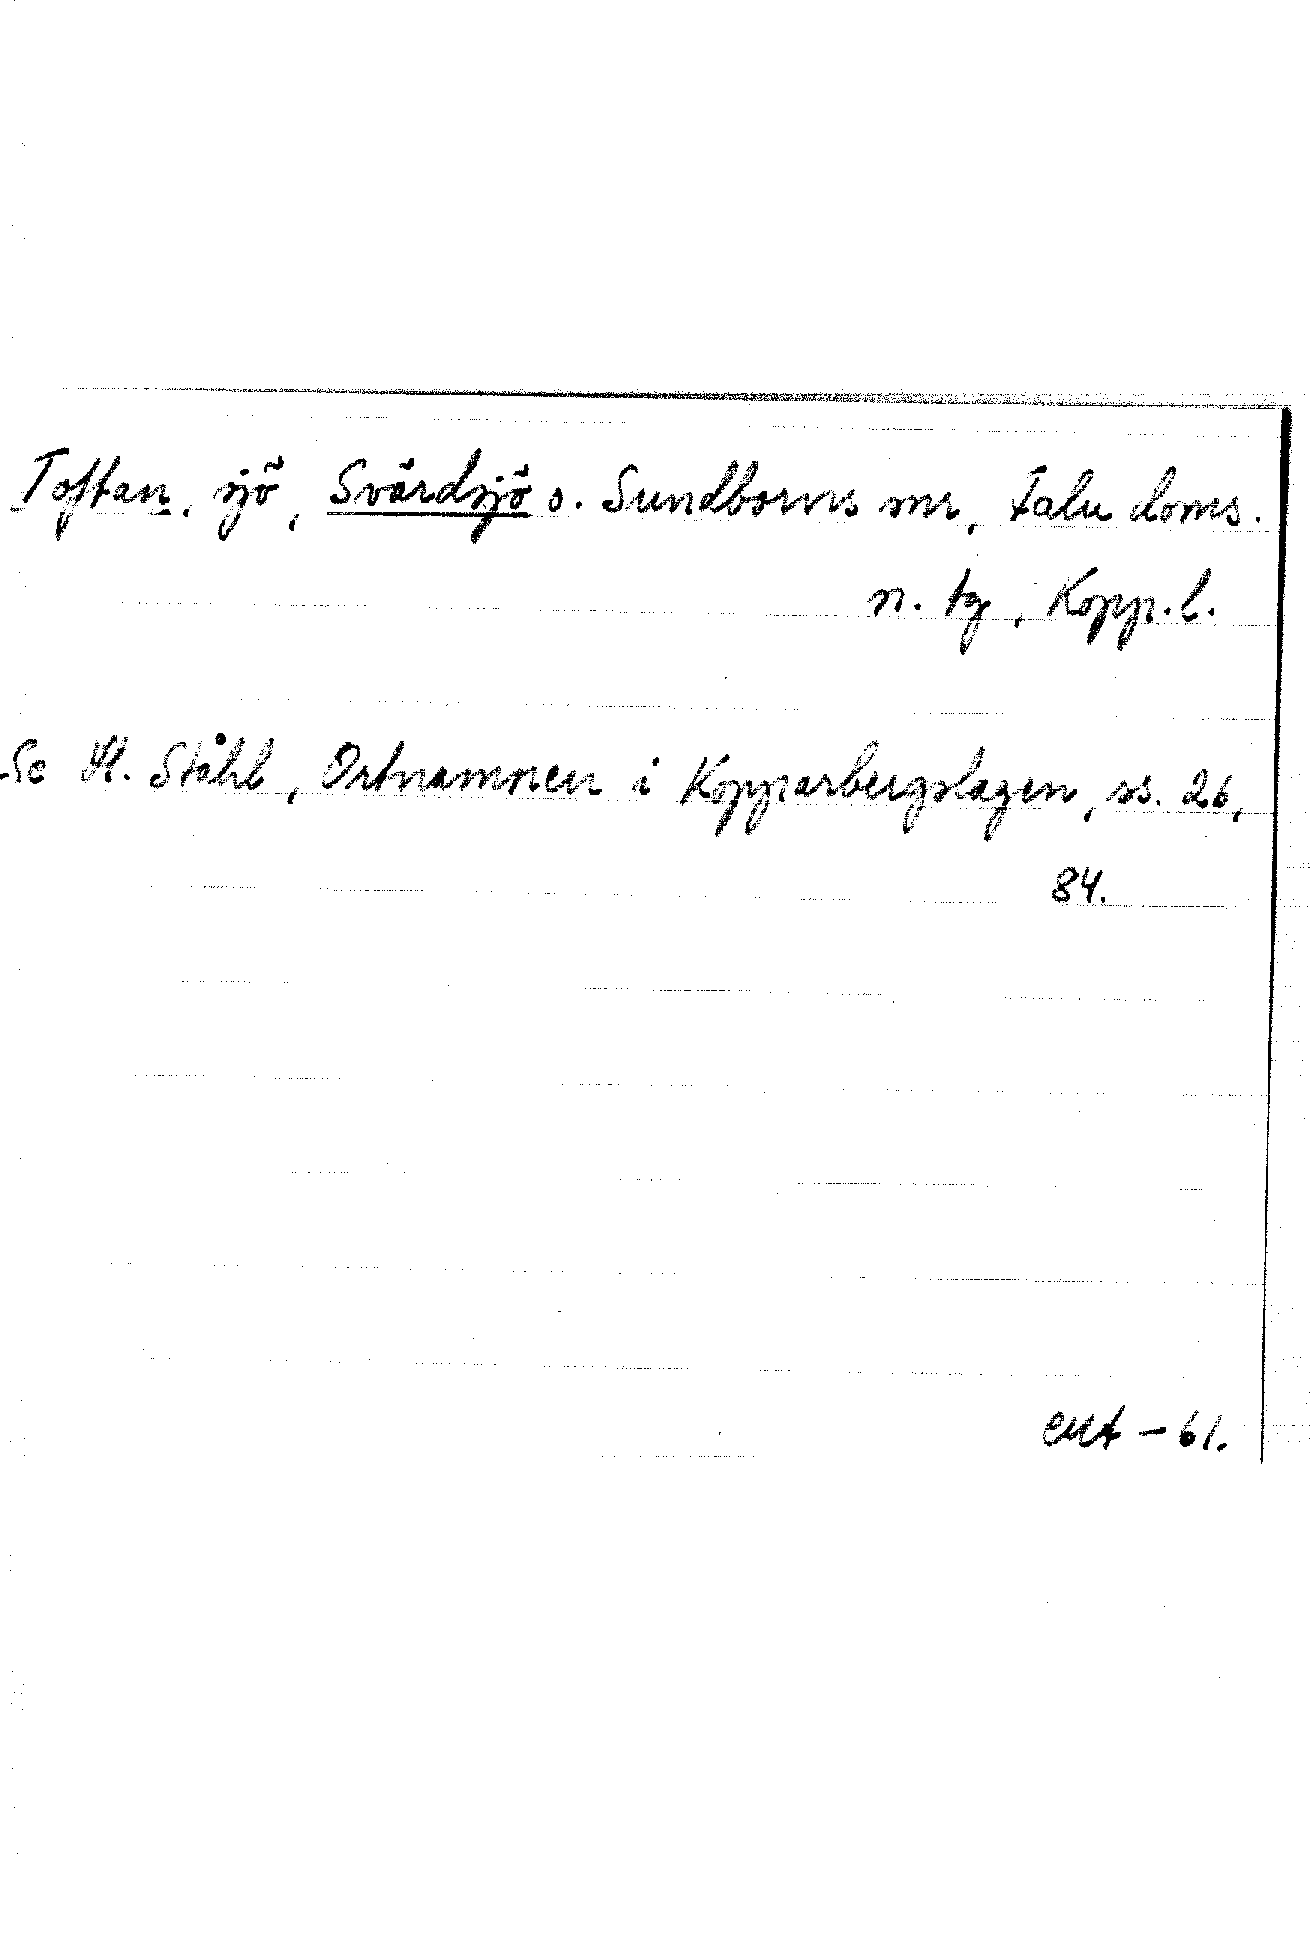 Toftan, sjö, Svärdsjö o. Sundborns snr, Falu doms.
n. tg, Kopp. l.
Se H. Ståhl, Ortnamnen i Kopparbergslagen, ss. 26,
84.
- 61.